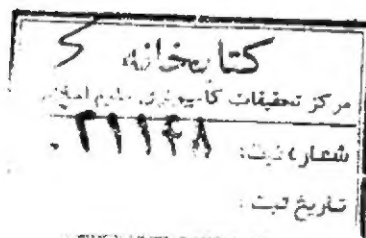 کتابخانه
مرکز تحقیقات کامپیوتری علوم اسلامی
شماره ثبت: ۰۳۱۱۴۸
تاریخ ثبت: